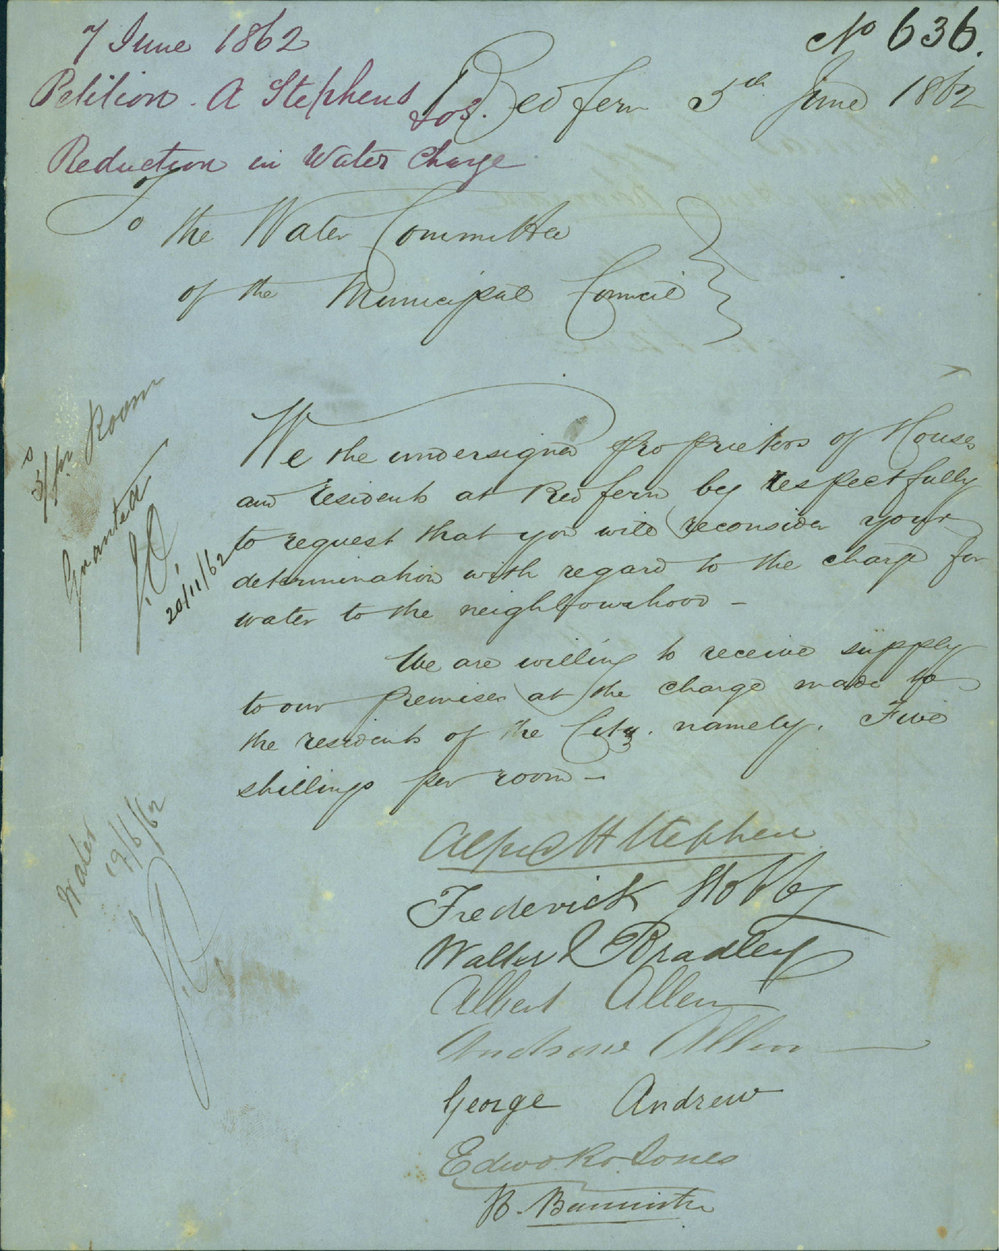 7 June 1862
No 636.
Petition. A Stephens
Redfern 5th June 1862
Reduction in Water Charge
To the Water Committee
of the Municipal Council
We the undersigned proprietors of Houses
and residents at Redfern beg respectfully
to request that you will reconsider your
determination with regard to the charge for
water to the neighbourhood -
We are willing to receive supply
to our premises at the charge made to
the residents of the City. namely. Five
shillings per room -
5/s pr Room
Granted
20/11/62
Water
19/6/62
Alfred H Stephen
Frederick Hobby
Walter Bradley
Albert Allen
Andrew Allen
George Andrew
Edwd. Ro. Jones
B. Bannister